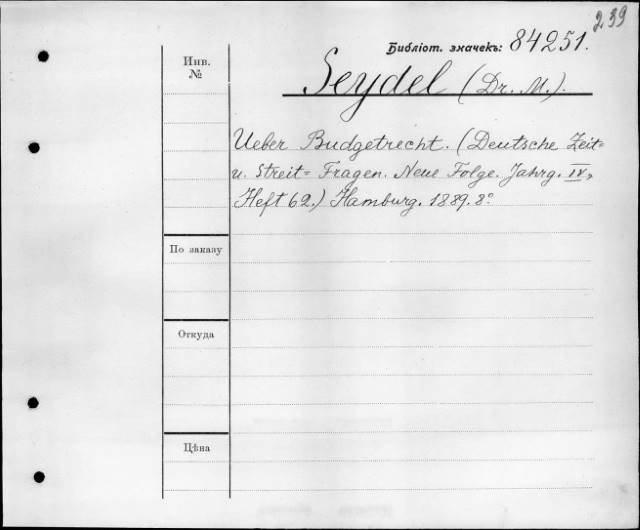 239
Библiот. значекъ: 84251.
Инв.
№
Seydel (Dr. M.).
Ueber Budgetrecht. (Deutsche Zeit-
u. Streit-Fragen. Neue Folge. Jahrg. IV,
Heft 62.) Hamburg. 1889. 8°
По заказу
Откуда
Цѣна